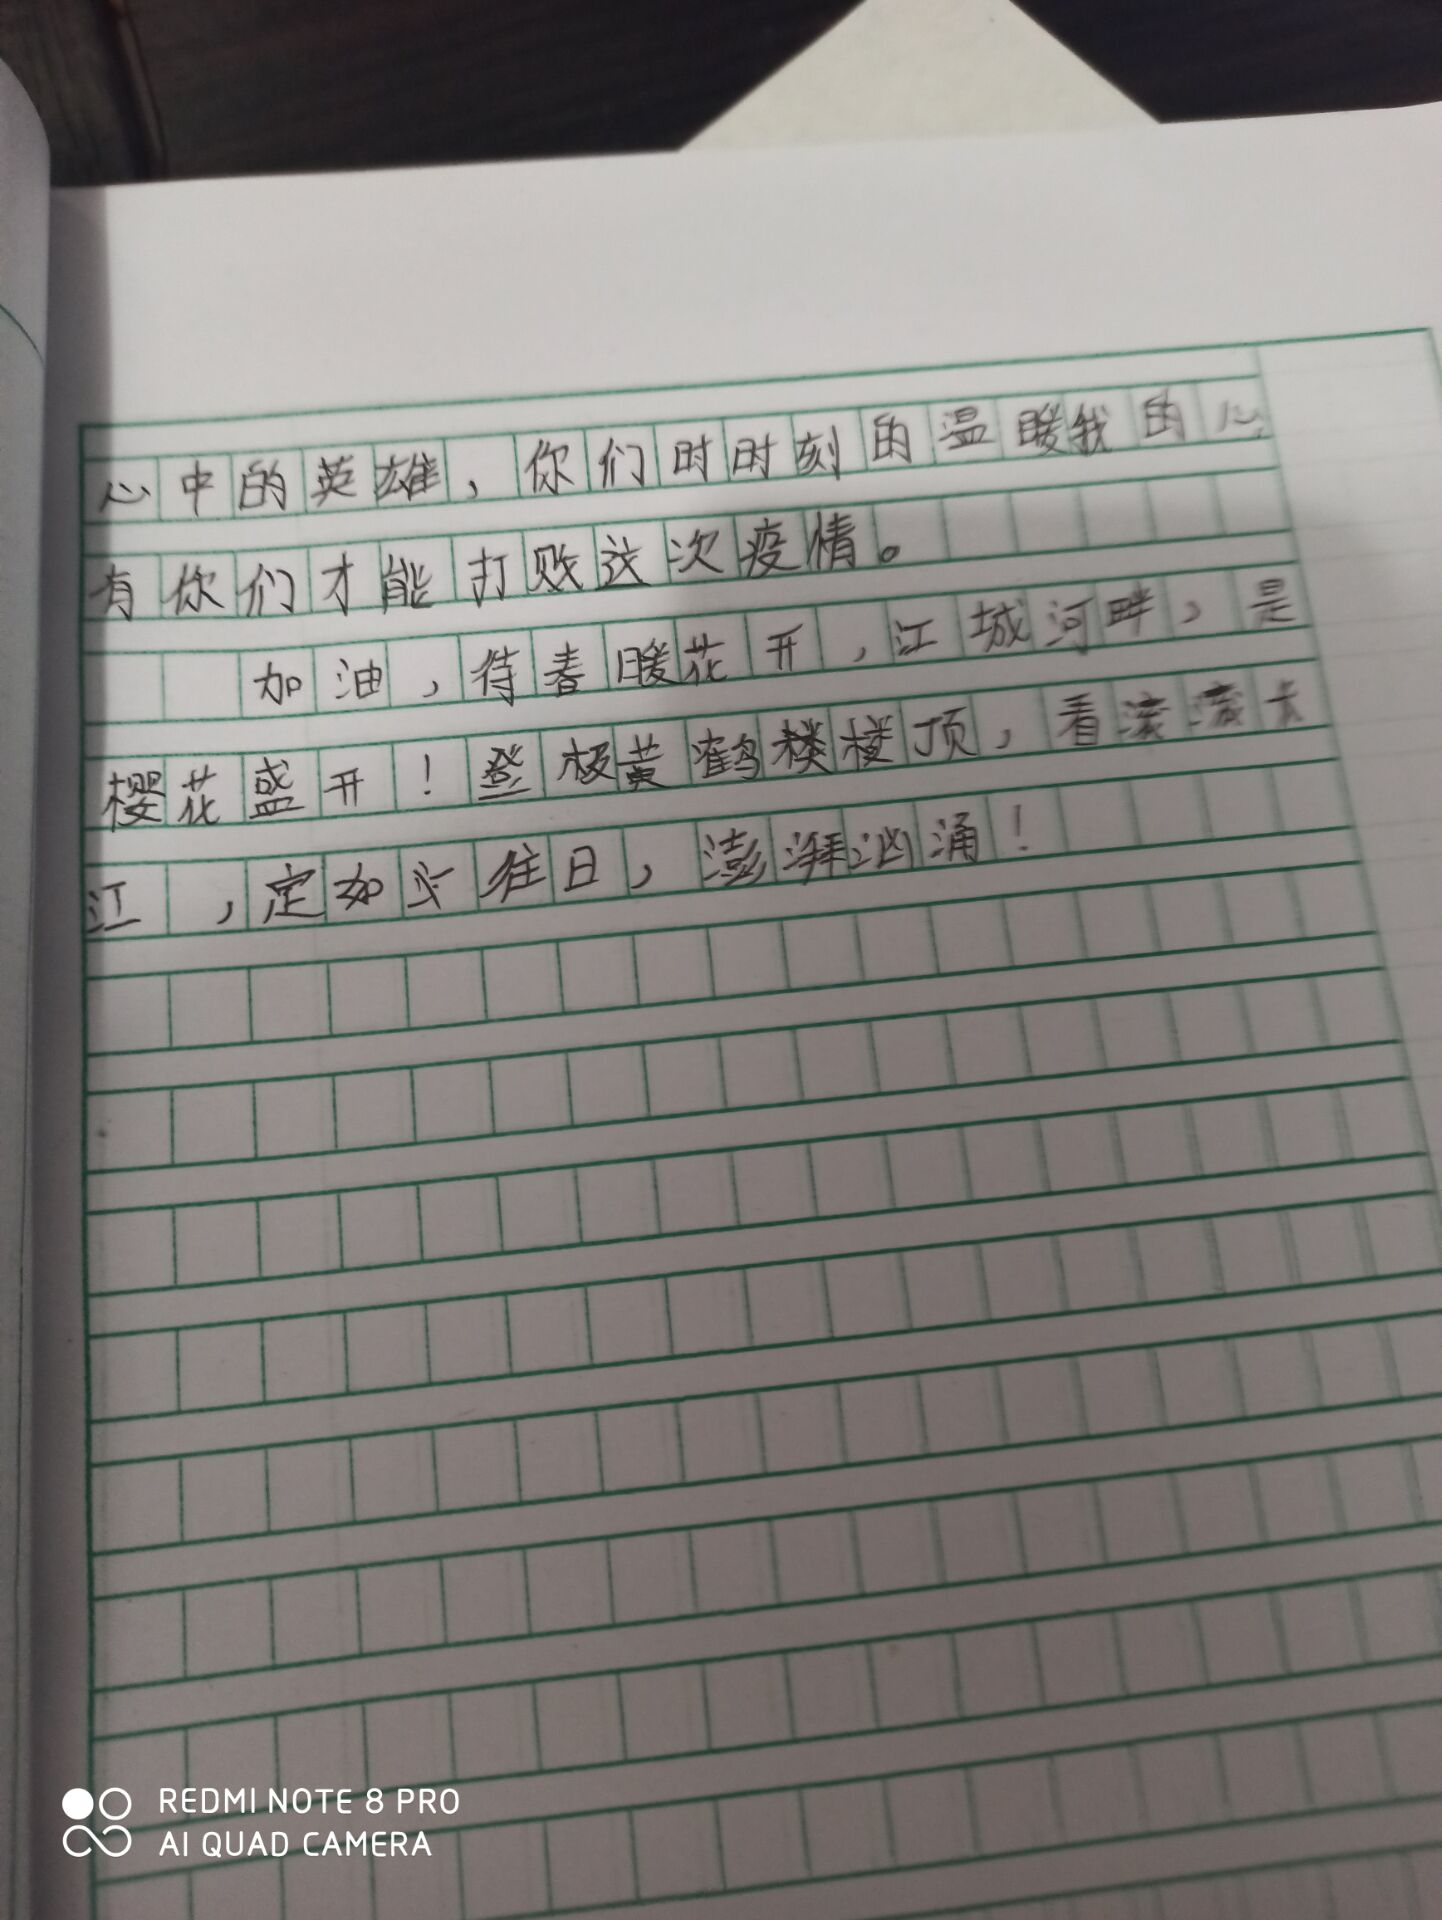 心中的英雄，你们时时刻的温暖我的心
有你们才能打败这次疫情。
加油，待春暖花开，江城河畔，是
樱花盛开！登极黄鹤楼楼顶，看滚滚长
江，定如头往日，澎湃汹涌！
REDMI NOTE 8 PRO
AI QUAD CAMERA